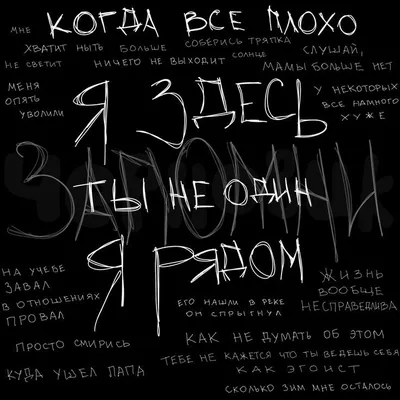 мне КОГДА ВСЕ ПЛОХО
хватит ныть больше соберись тряпка
слушай,
не светит ничего не выходит солнце
мамы больше нет
меня
опять
уволили
у некоторых
все намного
хуже
Я ЗДЕСЬ
ЗАПОМНИ
ТЫ НЕ ОДИН
Я РЯДОМ
на учебе
завал
в отношениях
провал
его нашли в реке
он спрыгнул
жизнь
вообще
несправедлива
просто смирись
как не думать об этом
тебе не кажется что ты ведешь себя
как эгоист
куда ушел папа
сколько зим мне осталось